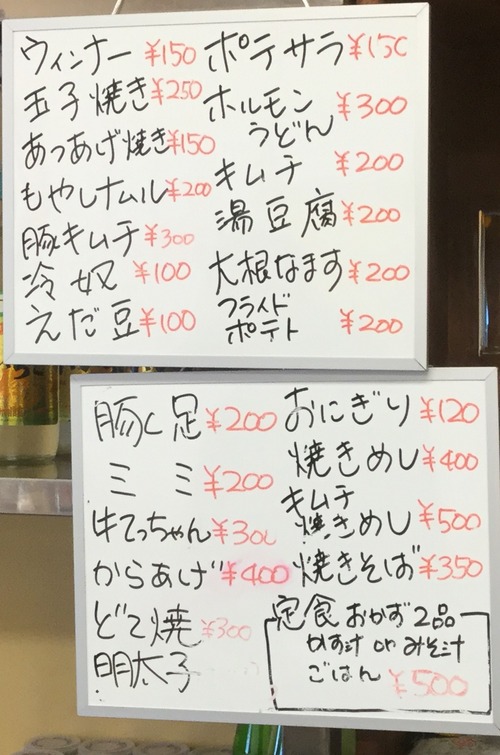 ウィンナー ¥150
玉子焼き ¥250
あつあげ焼き ¥150
もやしナムル ¥200
豚キムチ ¥300
冷奴 ¥100
えだ豆 ¥100
ポテサラ ¥150
ホルモン
うどん ¥300
キムチ ¥200
湯豆腐 ¥200
大根なます ¥200
フライド
ポテト ¥200
豚足 ¥200
ミミ ¥200
牛てっちゃん ¥300
からあげ ¥400
どて焼 ¥300
明太子
おにぎり ¥120
焼きめし ¥400
キムチ
焼きめし ¥500
焼きそば ¥350
定食 おかず2品
かす汁 or みそ汁
ごはん ¥500